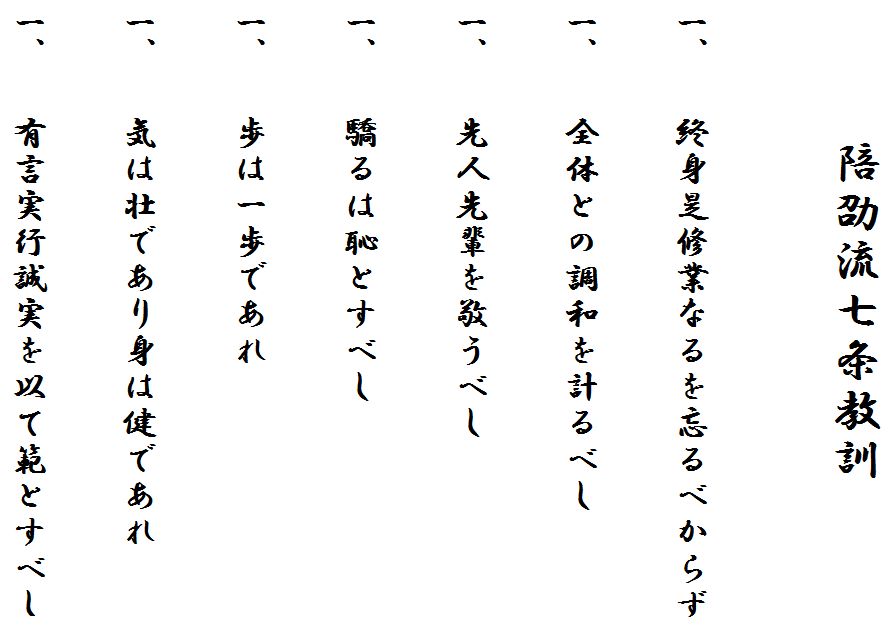 陪劭流七条教訓
一、 終身是修業なるを忘るべからず
一、 全体との調和を計るべし
一、 先人先輩を敬うべし
一、 驕るは恥とすべし
一、 歩は一歩であれ
一、 気は壮であり身は健であれ
一、 有言実行誠実を以て範とすべし